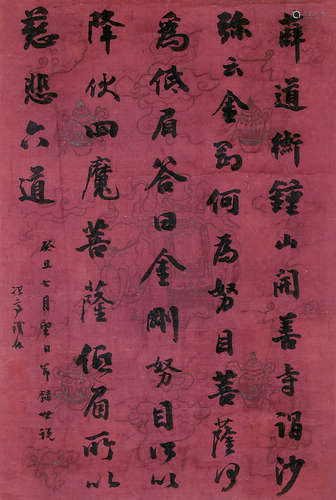 薛道衡鐘山開善寺謂沙
弥云金剛何為努目菩薩何
為低眉答曰金剛努目所以
降伏四魔菩薩低眉所以
慈悲六道
癸丑七月望日節錄世說